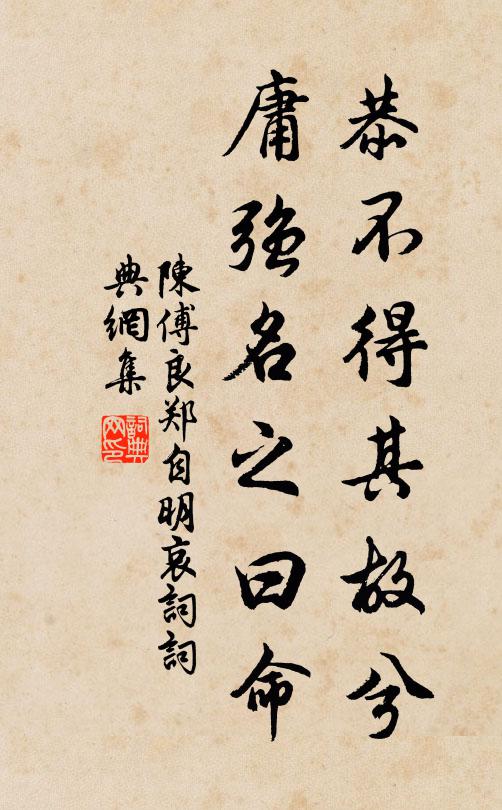 恭不得其故兮
庸強名之曰命
陳傅良郑自明哀詞詞
典網集
詞典
网印